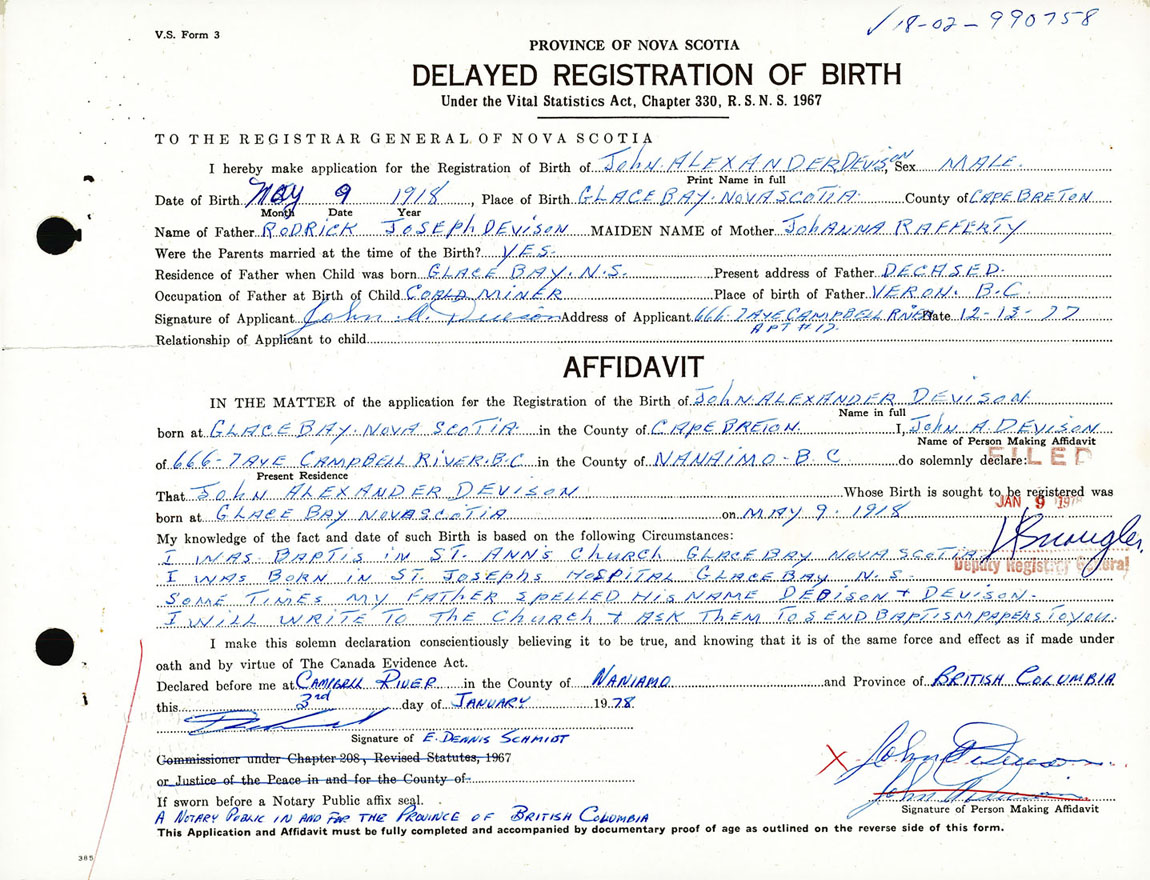 V.S. Form 3
√ 18-02-990758
PROVINCE OF NOVA SCOTIA
DELAYED REGISTRATION OF BIRTH
Under the Vital Statistics Act, Chapter 330, R.S.N.S. 1967
TO THE REGISTRAR GENERAL OF NOVA SCOTIA
I hereby make application for the Registration of Birth of John ALEXANDER DEVISON, Sex MALE.
Print Name in full
Date of Birth MAY 9 1918, Place of Birth GLACE BAY. NOVA SCOTIA. County of CAPE BRETON
Month Date Year
Name of Father RODRICK JOSEPH DEVISON MAIDEN NAME of Mother JOHANNA RAFFERTY
Were the Parents married at the time of the Birth? YES.
Residence of Father when Child was born GLACE BAY. N.S. Present address of Father DECASED.
Occupation of Father at Birth of Child MINER Place of birth of Father VERON. B.C.
Signature of Applicant John A. Devison Address of Applicant 666-7AVE CAMPBELL RIVER Date 12-13-77
APT #17.
Relationship of Applicant to child
AFFIDAVIT
IN THE MATTER of the application for the Registration of the Birth of JOHN ALEXANDER DEVISON
Name in full
born at GLACE BAY. NOVA SCOTIA. in the County of CAPE BRETON. I, JOHN A DEVISON
Name of Person Making Affidavit
of 666-7AVE CAMPBELL RIVER. B.C in the County of NANAIMO-B.C do solemnly declare:
FILED
Present Residence
That JOHN ALEXANDER DEVISON Whose Birth is sought to be registered was
JAN 9 1978
born at GLACE BAY NOVA SCOTIA on MAY 9. 1918
My knowledge of the fact and date of such Birth is based on the following Circumstances:
I WAS BAPTIS IN ST. ANN'S CHURCH GLACE BAY NOVA SCOTIA
Deputy Registrar General
I WAS BORN IN ST. JOSEPHS HOSPITAL GLACE BAY, N.S.
SOME TIMES MY FATHER SPELLED HIS NAME DEBISON + DEVISON.
I WILL WRITE TO THE CHURCH + ASK THEM TO SEND BAPTISM PAPERS TO YOU.
I make this solemn declaration conscientiously believing it to be true, and knowing that it is of the same force and effect as if made under
oath and by virtue of The Canada Evidence Act.
Declared before me at CAMPBELL RIVER in the County of NANIAMO and Province of BRITISH COLUMBIA
this 3rd day of JANUARY 1978
Signature of E. DENNIS SCHMIDT
Commissioner under Chapter 208, Revised Statutes, 1967
or Justice of the Peace in and for the County of
X John A Devison
John A Devison
If sworn before a Notary Public affix seal.
Signature of Person Making Affidavit
A NOTARY PUBLIC IN AND FOR THE PROVINCE OF BRITISH COLUMBIA
This Application and Affidavit must be fully completed and accompanied by documentary proof of age as outlined on the reverse side of this form.
385